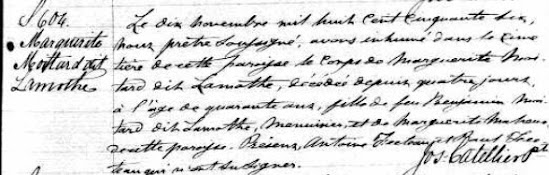 S. 604.
Marguerite
Moitard dit
Lamothe
Le dix novembre mil huit cent cinquante six,
nous prêtre soussigné, avons inhumé dans le cime
tière de cette paroisse le corps de Marguerite Moi
tard dit Lamothe, décédée depuis quatre jours,
à l'âge de quarante ans, fille de feu Benjamin Moi
tard dit Lamothe, Menuisier, et de Marguerite
de cette paroisse. Présens, Antoine et
qui n'ont su signer.
Jos. Catellier Pt